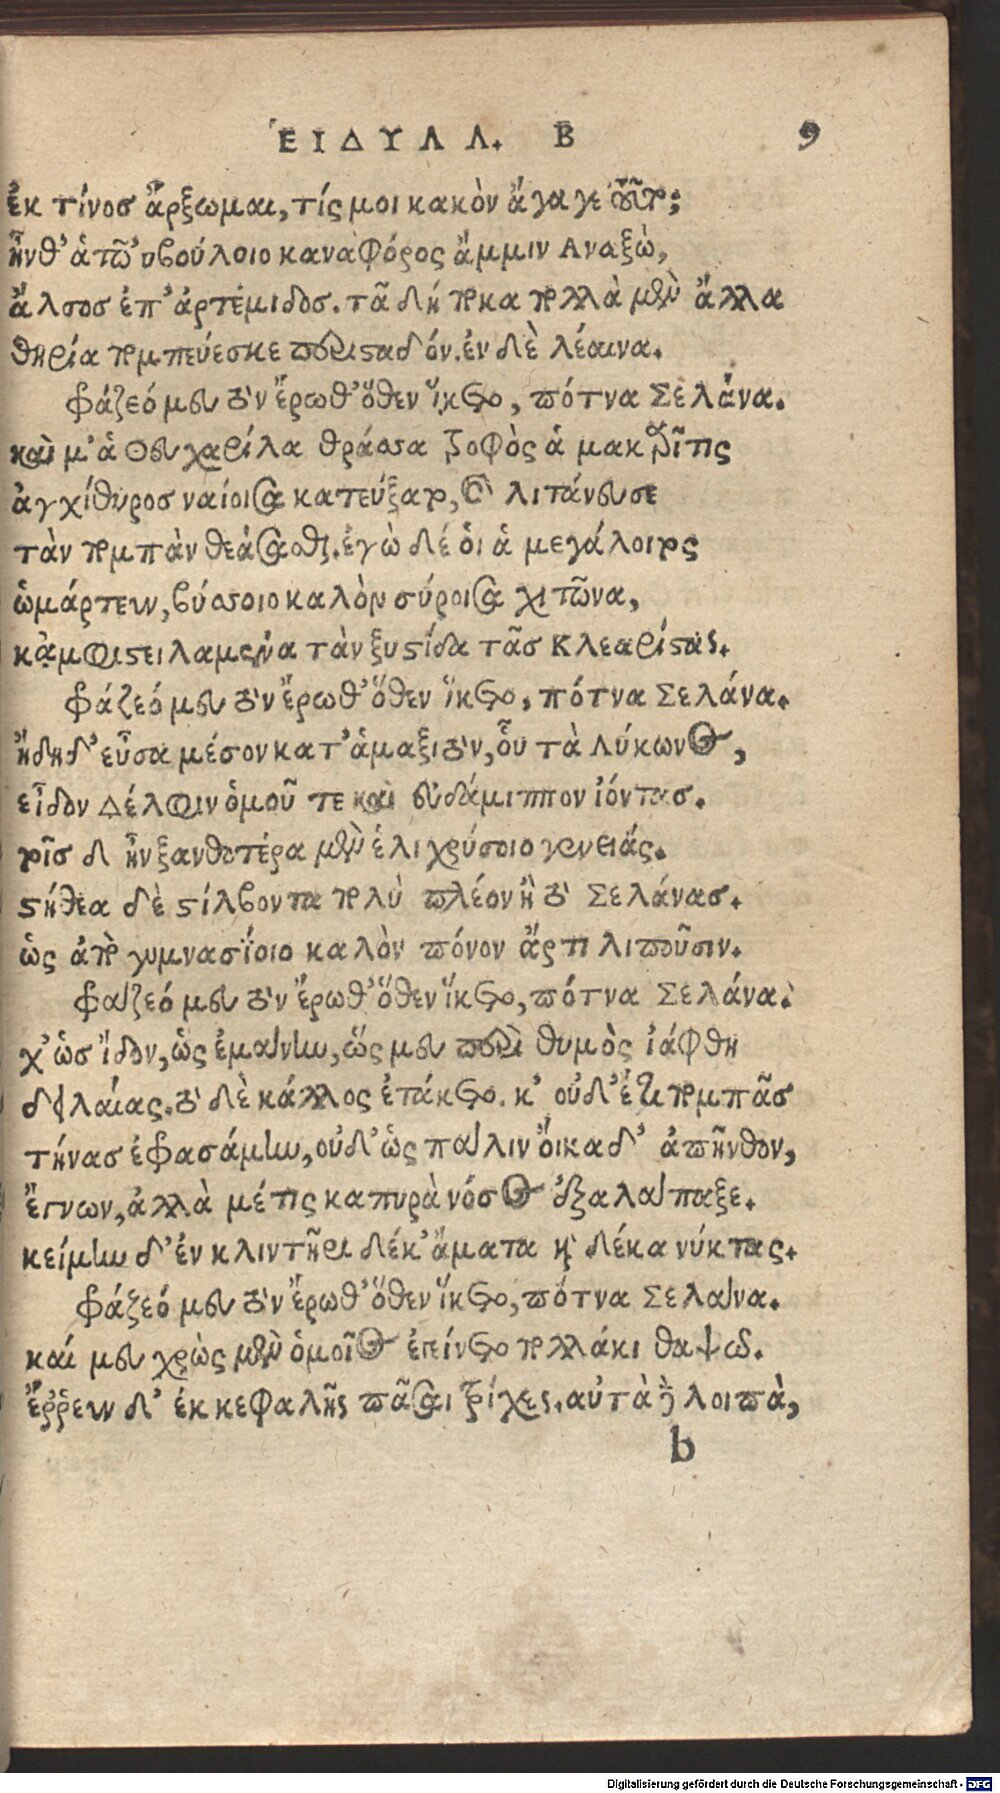 ἘΙΔΥΛΛ. Β 9
ἐκ τίνοσ ἄρξωμαι, τίς μοι κακὸν ἄγαγε τοῦτο;
ἦνθ' ἁ τῶ 'υβούλοιο καναφόρος ἄμμιν Αναξὼ,
ἄλσοσ ἐπ' ἀρτέμιδοσ. τᾶ δή τοκα πολλὰ μὲν ἄλλα
θηρία πομπεύεσκε περισαδόν. ἐν δὲ λέαινα.
φράζεό μευ τὸν ἔρωθ' ὅθεν ἵκετο, πότνα Σελάνα.
καὶ μ' ἁ Θευχαρίλα θράσσα τροφὸς ἁ μακαρῖτις
ἀγχίθυροσ ναίοισα κατεύξατο, καὶ λιτάνευσε
τὰν πομπὰν θεάσασθαι. ἐγὼ δέ ὁι ἁ μεγάλοιτος
ὡμάρτευν, βύσσοιο καλὸν σύροισα χιτῶνα,
κἀμφιστειλαμένα τὰν ξυστίδα τᾶσ Κλεαρίστας.
φράζεό μευ τὸν ἔρωθ' ὅθεν ἵκετο, πότνα Σελάνα.
ἤδη δ' εὖσα μέσον κατ' ἁμαξιτὸν, ὁῦ τὰ Λύκωνος,
εἶδον Δέλφιν ὁμοῦ τε καὶ ἐυδάμιππον ἰόντασ.
τοῖσ δ' ἦν ξανθοτέρα μὲν ἑλιχρύσοιο γενειάς.
στήθεα δὲ στίλβοντα πολὺ πλέον ἢ τὺ Σελάνασ.
ὡς ἀπὸ γυμνασΐοιο καλὸν πόνον ἄρτι λιποῦσιν.
φράζεό μευ τὸν ἔρωθ' ὅθεν ἵκετο, πότνα Σελάνα.
χ' ὡσ ἴδον, ὡς ἐμάνην, ὥς μευ περὶ θυμὸς ἰάφθη
δειλαίας. τὸ δὲ κάλλος ἐτάκετο. κ' οὐδ' ἔτι πομπᾶσ
τήνασ ἐφρασάμην, οὐδ' ὡς πάλιν ὄικαδ' ἀπῆνθον,
ἔγνων, ἀλλὰ μέ τις καπυρὰ νόσος ἐξαλάπαξε.
κείμην δ' ἐν κλιντῆρι δέκ' ἄματα καὶ δέκα νύκτας.
φράζεό μευ τὸν ἔρωθ' ὅθεν ἵκετο, πότνα Σελάνα.
καί μευ χρὼς μὲν ὁμοῖος ἐγίνετο πολλάκι θαψω.
ἔῤῥευν δ' ἐκ κεφαλῆς πᾶσαι τρίχες. αὐτὰ δὲ λοιπὰ,
b
Digitalisierung gefördert durch die Deutsche Forschungsgemeinschaft - DFG